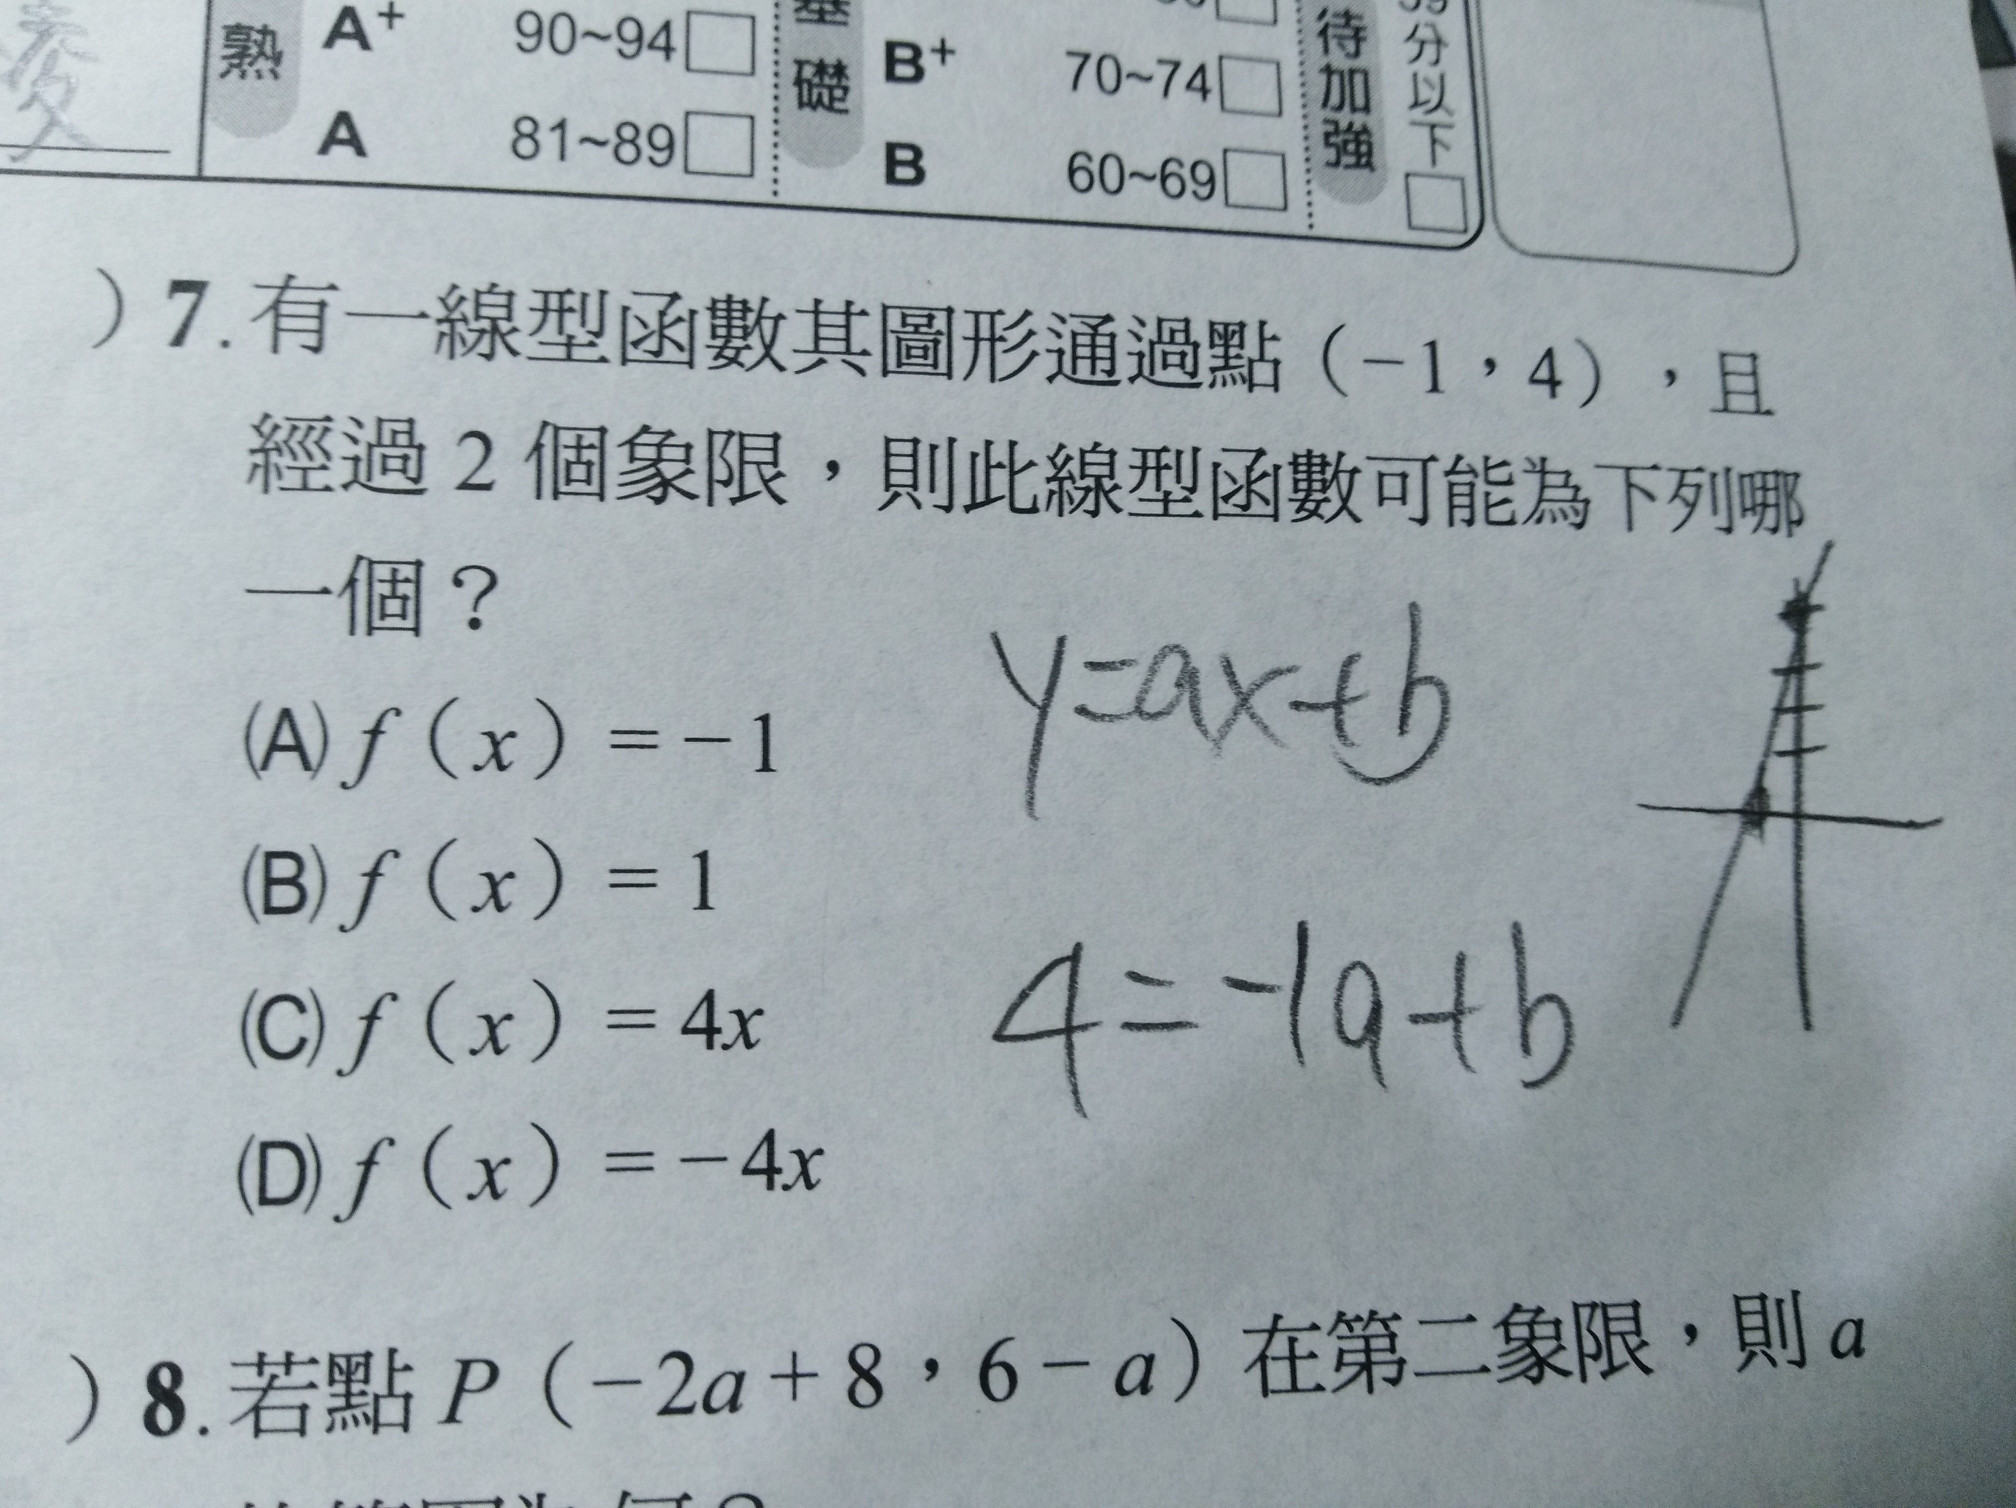 熟 A+ 90~94 基礎 B+ 70~74 待加強 59分以下
A 81~89 B 60~69
) 7. 有一線型函數其圖形通過點（-1，4），且
經過 2 個象限，則此線型函數可能為下列哪
一個？
y=ax+b
(A) f（x）= -1
(B) f（x）= 1
4=-1a+b
(C) f（x）= 4x
(D) f（x）= -4x
) 8. 若點 P（-2a+8，6-a）在第二象限，則 a